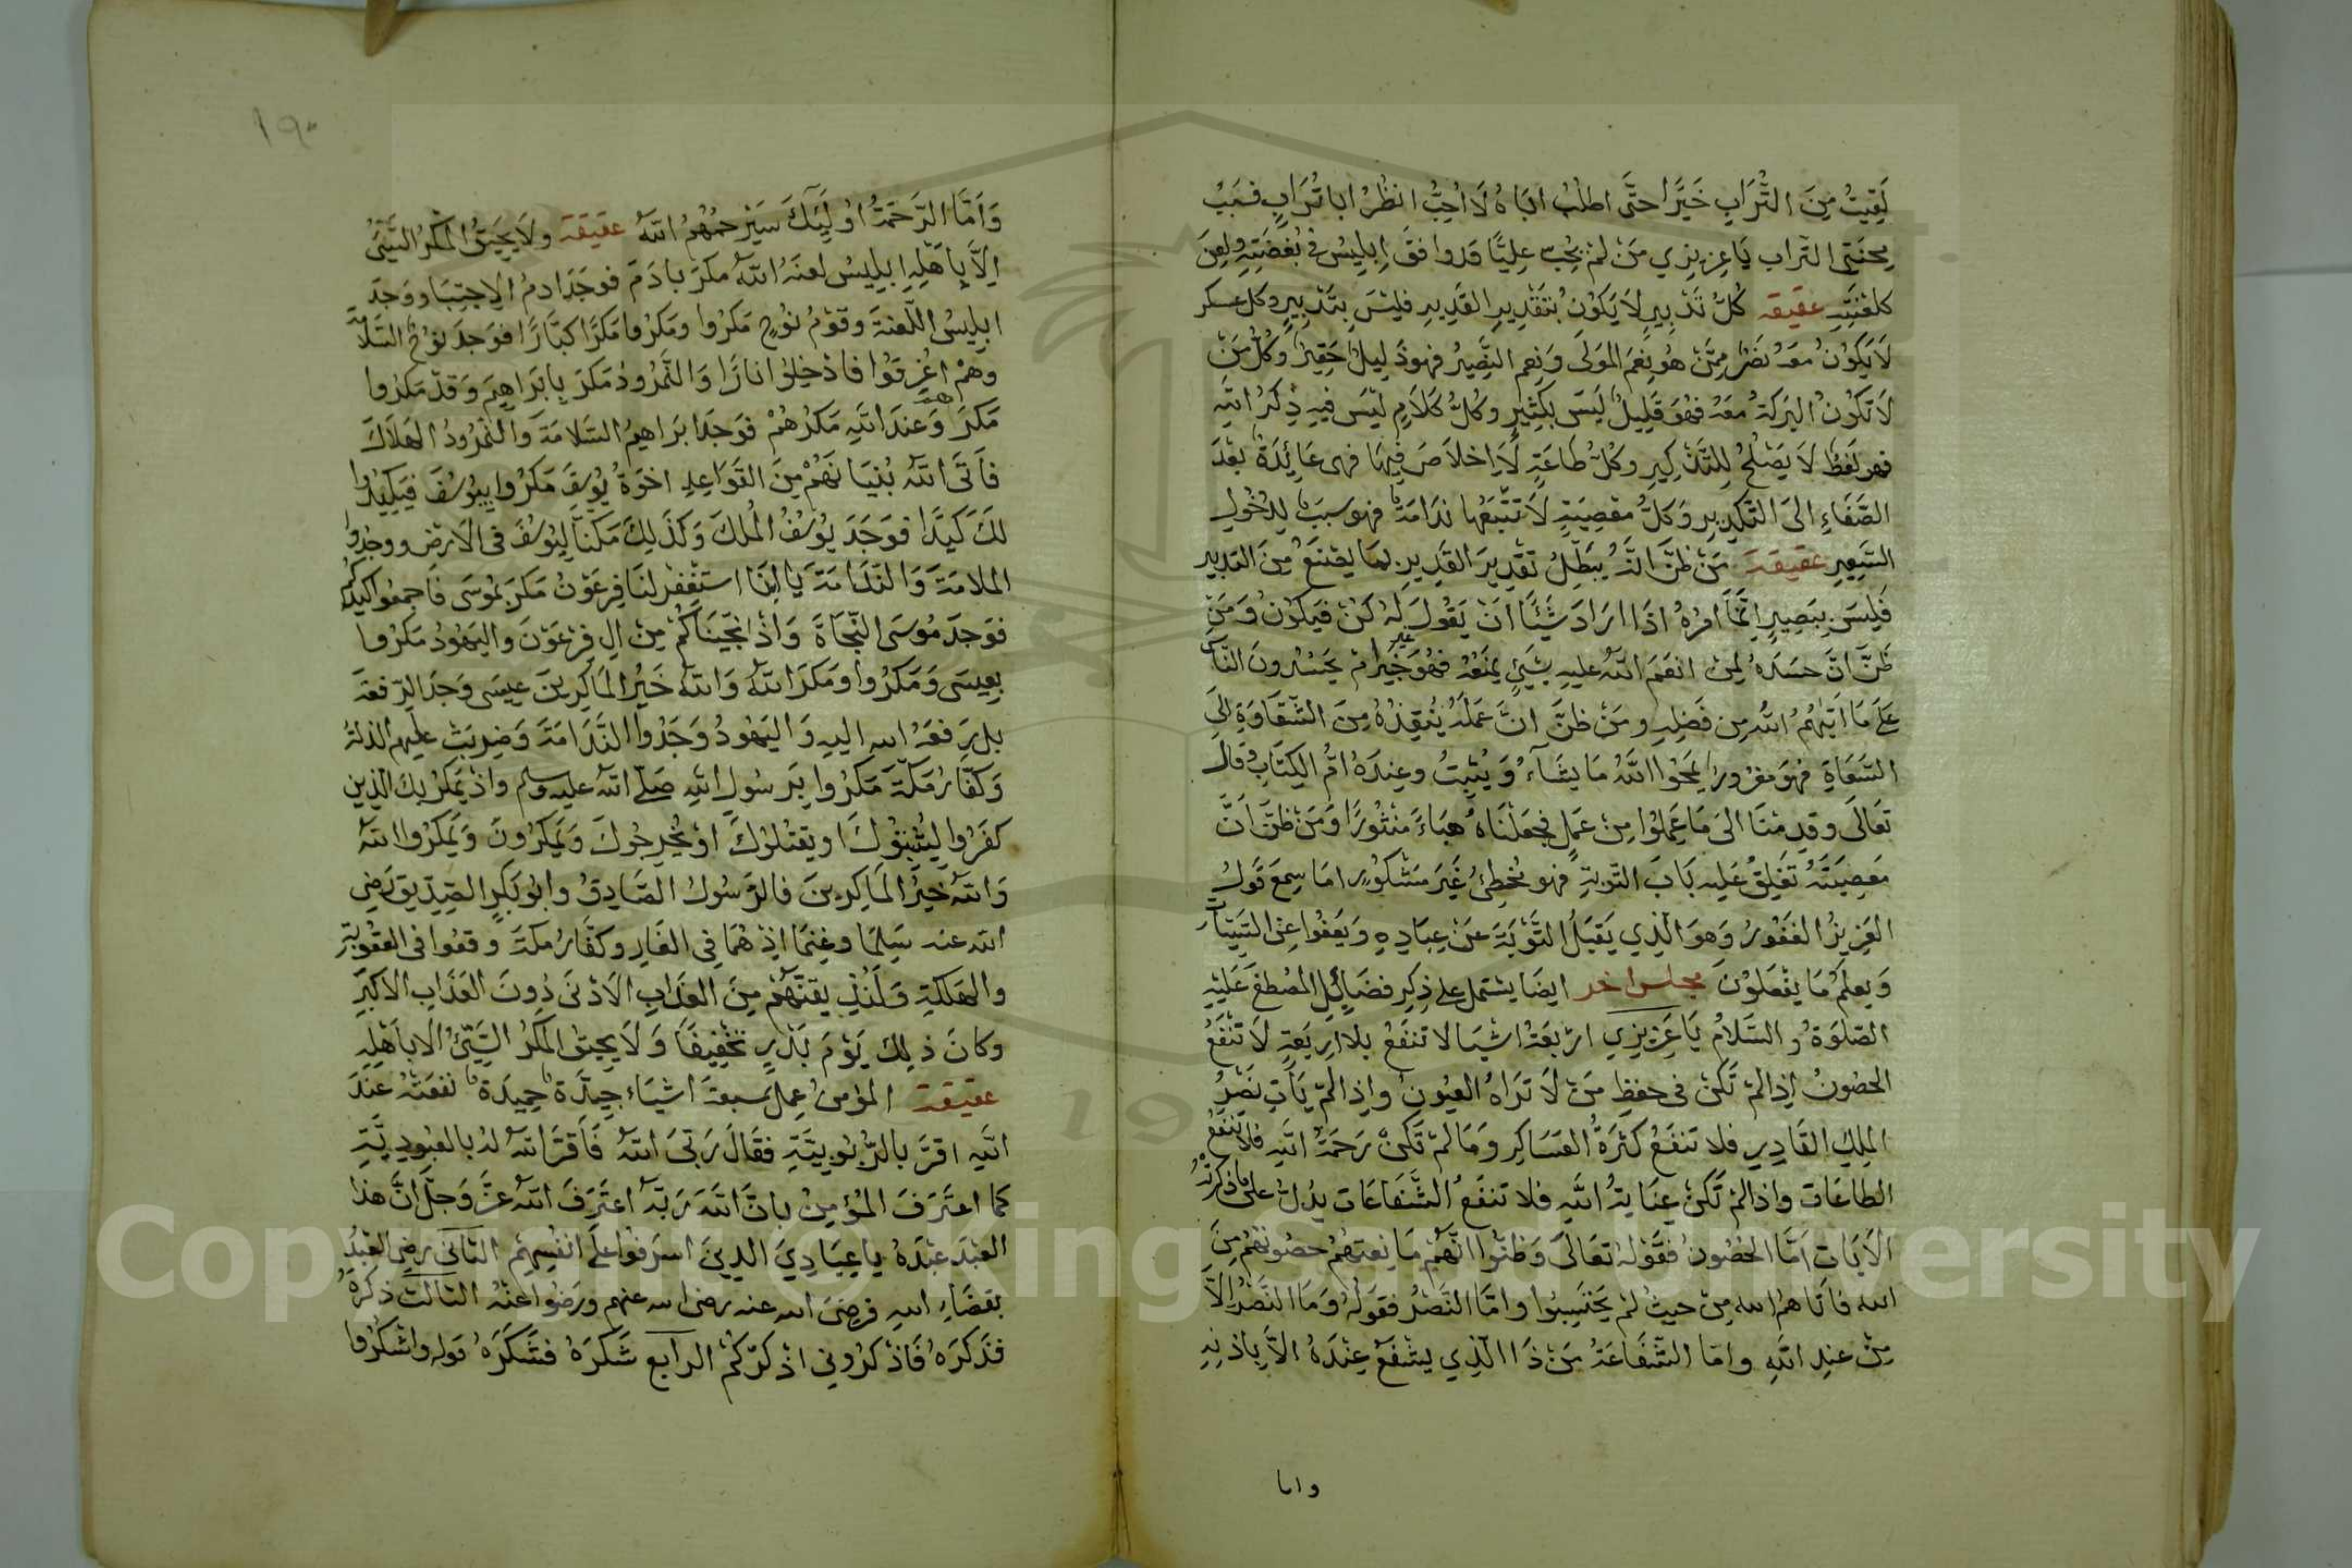 لَقِيتُ مِنَ التُّرَابِ خَيْرًا حتَّى اطلُبُ ابَاهُ لَا اُحِبُّ انظُرُ ابا تُرَابٍ فَبَحْبُ
يحبنى التراب يَا عزيزي مَنْ لَمْ يُحِب عليًّا قد وافقَ اِبليسُ في بُغضَتِهِ ولُعِنَ
كلعْنَتِهِ عقيقه كُلُّ تَدْبيرٍ لَا يَكُونُ بتقديرِ القَديرِ فليْسَ بتَدْبيرٍ وكل عسكر
لَا يَكُونُ معَهُ نَصْرٌ مِمَّنْ هُو نِعْمَ المَوْلَى وَنِعم النَّصِيرُ فهو ذَلِيلٌ حَقِيرٌ وَكُلُّ مَنْ
لَا تَكُونُ البَرَكَةُ معَهُ فهُوَ قَلِيلٌ لَيسَ بكثيرٍ وكُلُّ كَلَامٍ لَيْسَ فيهِ ذِكرُ اللَّهِ
فهو لَفظٌ لَا يَصْلُحُ لِلتَّذْكِيرِ وكُلُّ طاعَةٍ لَا اِخلَاصَ فِيهَا فهى عَائِدَةٌ بَعْدَ
الصَّفَاءِ الىَ التَّكْدِيرِ وَكلُّ معْصِيَةٍ لَا تَتْبَعُها نَدَامَةٌ فهو سبَبٌ لِدُخُولِ
السَّعِيرِ عَقيقَة مَنْ ظَنَّ انَّهُ يُبَطِّلُ تقْدِيرَ القَدِيرِ بمَا يصْنَعُ مِنَ التدبير
فَليسَ بِبَصِيرٍ اِنَّمَا امْرُهُ اذَا ارَادَ شَيْئًا انَ يَقُولَ لهُ كُنْ فَيَكُونُ وَمَنْ
ظَنَّ انَّ حسَدَهُ لِمَنْ انعَمَ اللهُ عليهِ بشَيءٍ يمنَعُهُ فهُوَ غير خَبِير ام يَحْسُدُونَ النَّاسَ
عَلَى مَا اتَيهُمُ اللهُ مِن فَضْلِهِ ومَنْ ظَنَّ انَّ عَمَلَهُ يُنْقِذُهُ مِنَ الشَّقَاوَةِ اِلَى
السَّعَادَةِ فهُوَ مغرُور يَمْحُوا اللَّهُ مَا يشَآءُ وَ يُثْبِتُ وعِندَهُ اُمُّ الكِتَابِ وقال
تعَالَى وقدِمْنَا الىَ مَا عَمِلُوا مِنْ عَمَلٍ فجعَلْنَاهُ هَبَاءً مَنْثُورًا وَمَنْ ظَنَّ انَّ
مَعصِيَتَهُ تَغْلِقُ عَلِيهِ بَابَ التَّوبةِ فهو مُخْطِئٌ غَيرَ مَشكُورٍ امَا سِمعَ قَولُ
العَزِيزُ الغَفُورُ وَهوَ الَّذِي يَقبَلُ التَّوْبَةَ عَنْ عِبَادِهِ وَيَعْفُوا عنِ السَّيِّئَاتِ
وَيعلَمُ مَا يفْعَلوُنَ مجلس اخر ايضًا يشتمل على ذِكرِ فضَائِلِ المُصْطفَى عَلَيْهِ
الصَّلوَةُ و السَّلَامُ يَا عَزيزِي اربَعَةُ اشيَا لا تنفَعُ بلا اربَعةٍ لَا تَنْفَعُ
الحصُونُ اِذا لمْ تَكنْ فى حفظِ مَنْ لَا تَرَاهُ العُيُونِ واِذا لَمْ يَأتِ نَصْرُ
المَلِكِ القَادِرِ فلا تنفَعُ كثرَةُ العَسَاكِرِ وَمَا لَمْ تَكنْ رَحمَةُ اللهِ فلا تَنْفَعُ
الطاعَات واذا لمْ تَكنْ عِنَايةُ اللهِ فلا تنفَعُ الشَّفَاعَات يدُلُّ على ما ذكرتُهُ
الآيَات امَّا الحُصُونُ فقَوْلهُ تعَالَى وَظنُّوا انَّهُمْ مَا نِعتهُمْ حصُونهُمْ مِنَ
الله فاتَاهمُ الله مِنْ حيثُ لمْ يحْتَسِبُوا وامَّا النَّصْرُ فقَولهُ وَمَا النَّصْرُ اِلَّا
مِنْ عندِ اللهِ وامّا الشَّفَاعَةُ مَنْ ذَا الَّذِي يشْفَعُ عِنْدَهُ الاَّ بِاِذنِهِ
واما
١٩٠
وَامَّا الرَّحمَةُ اوُلَئِكَ سَيَرْحَمُهُمُ اللهُ عقيقة ولَا يَحِيقُ المَكْرُ السَّيِّئُ
اِلَّا بِاَهْلِهِ ابليسُ لعنَهُ اللهُ مكرَ بادَمَ فوجَدَ ادمُ الاِجتِبَا ووَجدَ
ابليسُ اللّعنةَ وقوْمُ نوُحٍ مَكَرُوا ومَكرُوا مَكْرًا كبَّارًا فوَجدَ نوُحٌ السَّلامَة
وهُمْ اغْرِقُوا فادْخِلوُا نارًا وَالنَّمرُودُ مَكرَ بِابرَاهِيمَ وَقدْ مَكرُوا
مَكرَهُمْ وَعندَ اللهِ مَكرُهمْ فوَجدَ ابرَاهيمُ السَّلامَةَ وَالنَّمْرُودُ الهَلَاكَ
فاَتَى اللهُ بُنيَانَهُمْ مِنَ القَوَاعِدِ اخوَةُ يوُسفَ مَكرُوا بِيوُسُفَ فيَكِيدُوا
لَكَ كيْدًا فوَجَدَ يوُسُفُ المُلكَ وَكَذَلِكَ مَكنّا لِيوُسُفَ فى الاَرْضِ ووجدوا
الملامَةَ وَالنَّدَامَةَ يَا ابَانَا استغْفِرْ لنَا فِرعَوْن مَكرَ بموُسَى فَاجمعوا كيدكم
فوَجدَ مُوسَى النّجَاةَ وَاذْ نجّيْنَاكُمْ مِنْ الِ فِرْعَوْنَ واليَهُودُ مَكرُوا
بعِيسَى وَمَكرُوا ومَكرَ اللهُ وَاللهُ خَيْرُ المَاكِرِينَ عِيسَى وَجدَ الرّفعَة
بل رَفعَهُ الله اليهِ وَاليَهُودُ وَجَدُوا النَّدَامَةَ وَضُرِبَتْ عليهِم الذلةُ
وَكفّارُ مَكّةَ مَكرُوا بِرَسُولِ اللهِ صَلّى اللهُ عليه وسلم واذ يَمكُرُ بكَ الَّذِين
كفَرُوا لِيُثبِتوُكَ او يَقتلوُكَ اوْ يُخرِجُوكَ وَيَمكرُونَ وَيَمكرُوا اللهُ
وَاللهُ خَيْرُ المَاكِرِينَ فالرَّسُولُ الصَّادِقُ وابوُ بَكرٍ الصِّدّيق رَضِى
الله عنه سَلِمَا وغنِمَا اِذ هُمَا فِى الغَارِ وكفّارُ مكّةَ وقعُوا فى العقُوبَةِ
والهَلكَةِ وَلَنُذِيقنّهُمْ مِنَ العَذَابِ الاَدْنَى دُونَ العَذَابِ الاَكبَرِ
وكانَ ذلِكَ يَوْمَ بَدْرٍ تخْفِيفًا وَلَا يحيقُ المَكْرُ السَّيِّئُ الا باَهْلِهِ
عقيقة المؤمنُ عمِلَ سبعَةَ اشيَاء جيِّدَة حمِيدَة نفعَتْهُ عندَ
اللهِ اقرَّ بالرُّبوُبِيَّةِ فقَالَ رَبِّىَ اللهُ فَاَقرَّ اللهُ لهُ بالعبُودِيَّةِ
كما اعتَرَفَ المُؤمِنُ بانَّ اللهَ رَبّهُ اعتَرَفَ اللهُ عزَّ وَجلَّ انَّ هذَا
العَبْدَ عبْدَهُ يا عِبَادِيَ الَّذِينَ اسرَفوُا علَى انفُسِهِمْ الثانى رضِى العَبْدُ
بقضَاءِ اللهِ فرضِىَ الله عنه رضى الله عنهم ورَضُوا عنْهُ الثالث ذكرَهُ
فذَكرَهُ فاذكرُونى اذكرْكُمْ الرابع شَكرَهُ فشَكرَهُ قوله واشكرُوا
Copyright © King Saud University